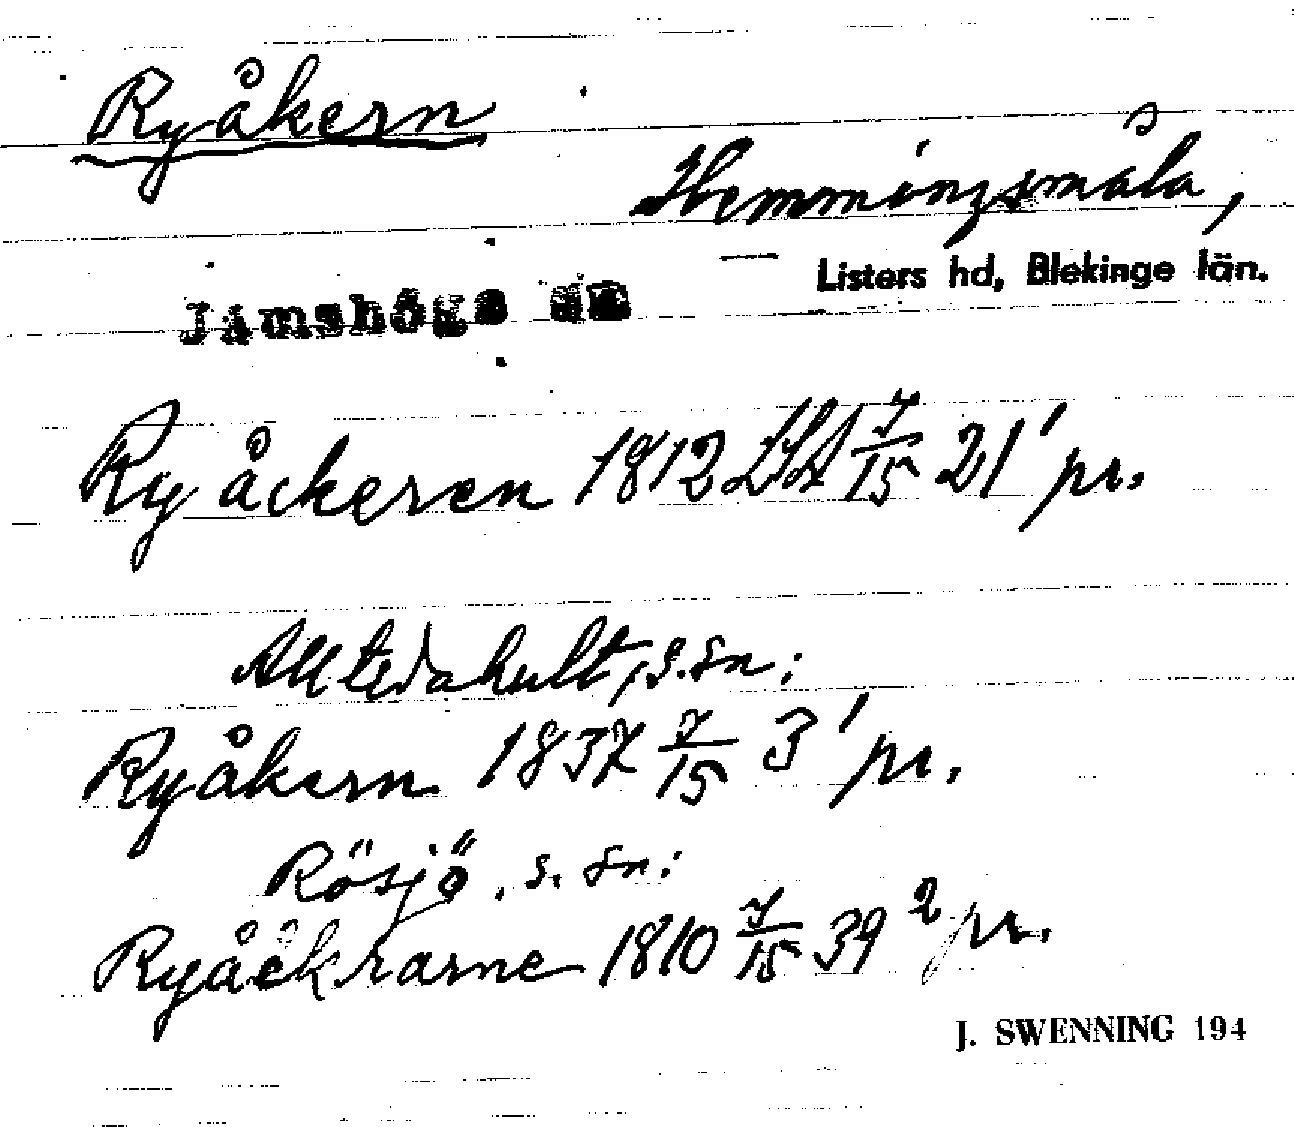 Ryåkern
Hemmingsmåla,
Jämshögs sn — Listers hd, Blekinge län.
Ryåckeren 1812 LSA 7/15 21' pr.
Alltidahult, s. sn:
Ryåkern 1837 7/15 3' pr.
Rösjö, s. sn:
Ryåckrarne 1810 7/15 39² pr.
J. SWENNING 194